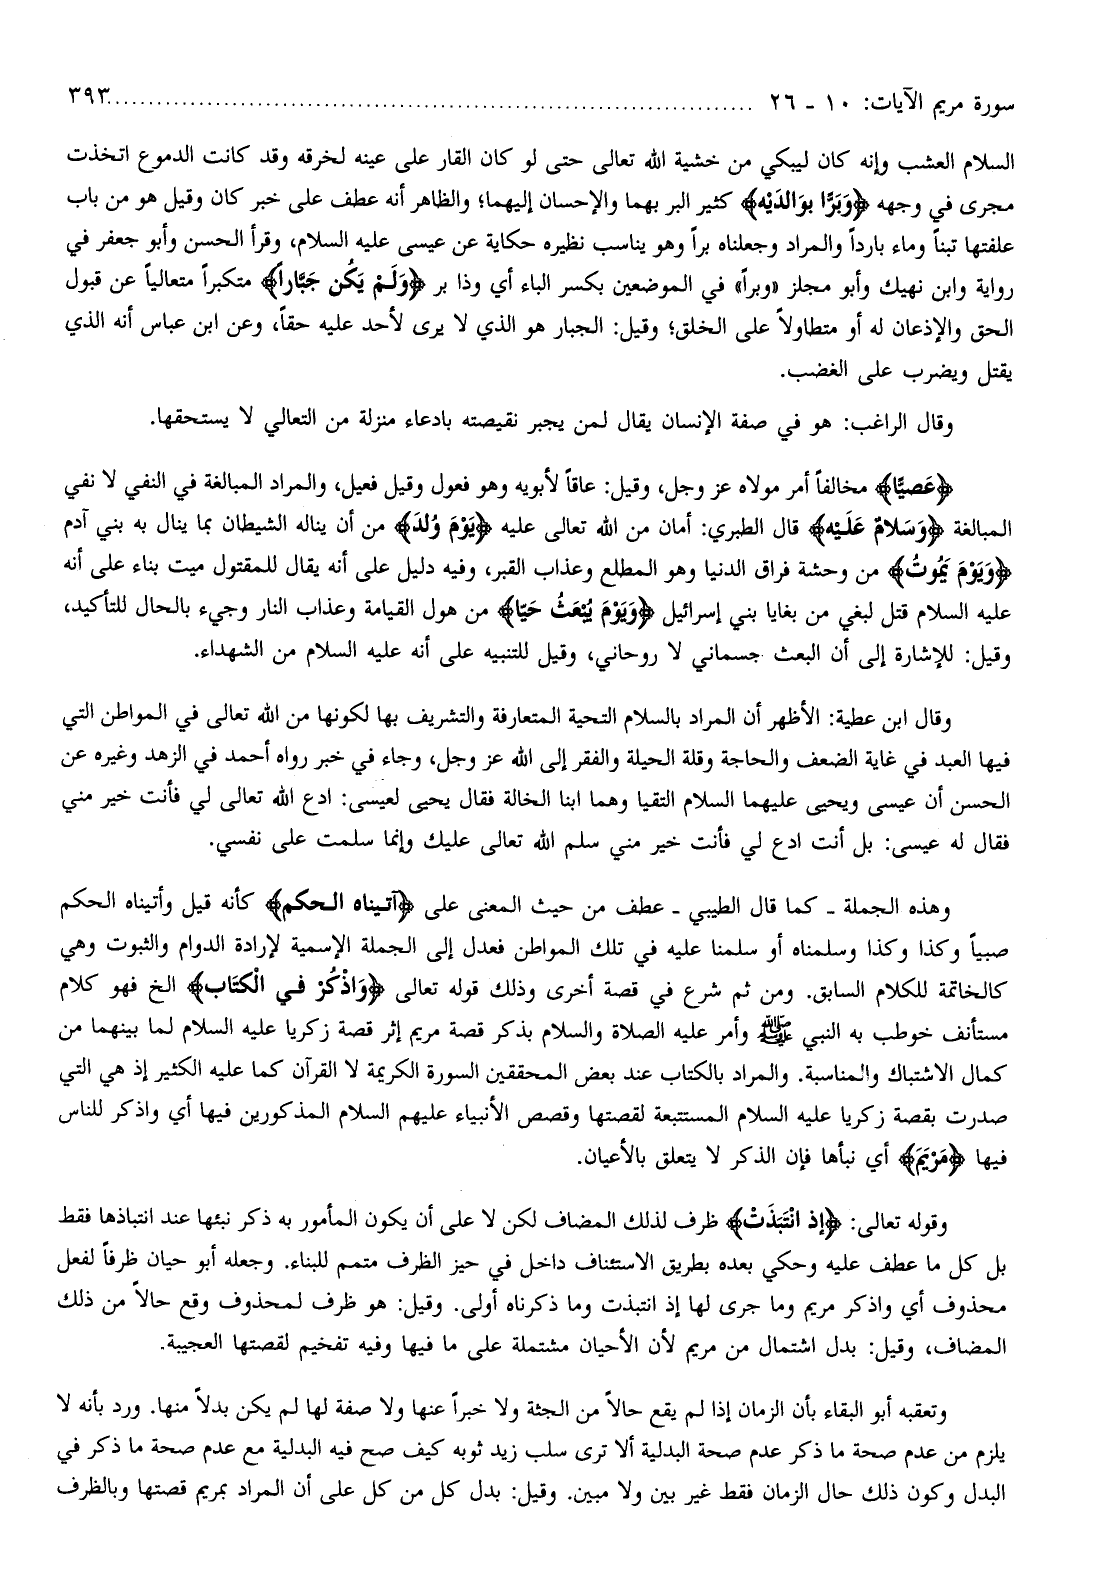 سورة مريم الآيات: ١٠ ـ ٢٦ ........................................ ٣٩٣
السلام العشب وإنه كان ليبكي من خشية الله تعالى حتى لو كان القار على عينه لخرقه وقد كانت الدموع اتخذت
مجرى في وجهه ﴿وَبَرًّا بِوَالِدَيْهِ﴾ كثير البر بهما والإحسان إليهما؛ والظاهر أنه عطف على خبر كان وقيل هو من باب
علفتها تبناً وماء بارداً والمراد وجعلناه براً وهو يناسب نظيره حكاية عن عيسى عليه السلام، وقرأ الحسن وأبو جعفر في
رواية وابن نهيك وأبو مجلز «وبراً» في الموضعين بكسر الباء أي وذا بر ﴿وَلَمْ يَكُن جَبَّاراً﴾ متكبراً متعالياً عن قبول
الحق والإذعان له أو متطاولاً على الخلق؛ وقيل: الجبار هو الذي لا يرى لأحد عليه حقاً، وعن ابن عباس أنه الذي
يقتل ويضرب على الغضب.
وقال الراغب: هو في صفة الإنسان يقال لمن يجبر نقيصته بادعاء منزلة من التعالي لا يستحقها.
﴿عَصِيًّا﴾ مخالفاً أمر مولاه عز وجل، وقيل: عاقاً لأبويه وهو فعول وقيل فعيل، والمراد المبالغة في النفي لا نفي
المبالغة ﴿وَسَلامٌ عَلَيْهِ﴾ قال الطبري: أمان من الله تعالى عليه ﴿يَوْمَ وُلِدَ﴾ من أن يناله الشيطان بما ينال به بني آدم
﴿وَيَوْمَ يَمُوتُ﴾ من وحشة فراق الدنيا وهو المطلع وعذاب القبر، وفيه دليل على أنه يقال للمقتول ميت بناء على أنه
عليه السلام قتل لبغي من بغايا بني إسرائيل ﴿وَيَوْمَ يُبْعَثُ حَيًّا﴾ من هول القيامة وعذاب النار وجيء بالحال للتأكيد،
وقيل: للإشارة إلى أن البعث جسماني لا روحاني، وقيل للتنبيه على أنه عليه السلام من الشهداء.
وقال ابن عطية: الأظهر أن المراد بالسلام التحية المتعارفة والتشريف بها لكونها من الله تعالى في المواطن التي
فيها العبد في غاية الضعف والحاجة وقلة الحيلة والفقر إلى الله عز وجل، وجاء في خبر رواه أحمد في الزهد وغيره عن
الحسن أن عيسى ويحيى عليهما السلام التقيا وهما ابنا الخالة فقال يحيى لعيسى: ادع الله تعالى لي فأنت خير مني
فقال له عيسى: بل أنت ادع لي فأنت خير مني سلم الله تعالى عليك وإنما سلمت على نفسي.
وهذه الجملة ـ كما قال الطيبي ـ عطف من حيث المعنى على ﴿آتيناه الحكم﴾ كأنه قيل وأتيناه الحكم
صبياً وكذا وكذا وسلمناه أو سلمنا عليه في تلك المواطن فعدل إلى الجملة الإسمية لإرادة الدوام والثبوت وهي
كالخاتمة للكلام السابق. ومن ثم شرع في قصة أخرى وذلك قوله تعالى ﴿وَاذْكُرْ فِي الْكِتَابِ﴾ الخ فهو كلام
مستأنف خوطب به النبي ﷺ وأمر عليه الصلاة والسلام بذكر قصة مريم إثر قصة زكريا عليه السلام لما بينهما من
كمال الاشتباك والمناسبة. والمراد بالكتاب عند بعض المحققين السورة الكريمة لا القرآن كما عليه الكثير إذ هي التي
صدرت بقصة زكريا عليه السلام المستتبعة لقصتها وقصص الأنبياء عليهم السلام المذكورين فيها أي واذكر للناس
فيها ﴿مَرْيَمَ﴾ أي نبأها فإن الذكر لا يتعلق بالأعيان.
وقوله تعالى: ﴿إِذِ انْتَبَذَتْ﴾ ظرف لذلك المضاف لكن لا على أن يكون المأمور به ذكر نبئها عند انتباذها فقط
بل كل ما عطف عليه وحكي بعده بطريق الاستئناف داخل في حيز الظرف متمم للبناء. وجعله أبو حيان ظرفاً لفعل
محذوف أي واذكر مريم وما جرى لها إذ انتبذت وما ذكرناه أولى. وقيل: هو ظرف لمحذوف وقع حالاً من ذلك
المضاف، وقيل: بدل اشتمال من مريم لأن الأحيان مشتملة على ما فيها وفيه تفخيم لقصتها العجيبة.
وتعقبه أبو البقاء بأن الزمان إذا لم يقع حالاً من الجثة ولا خبراً عنها ولا صفة لها لم يكن بدلاً منها. ورد بأنه لا
يلزم من عدم صحة ما ذكر عدم صحة البدلية ألا ترى سلب زيد ثوبه كيف صح فيه البدلية مع عدم صحة ما ذكر في
البدل وكون ذلك حال الزمان فقط غير بين ولا مبين. وقيل: بدل كل من كل على أن المراد بمريم قصتها وبالظرف